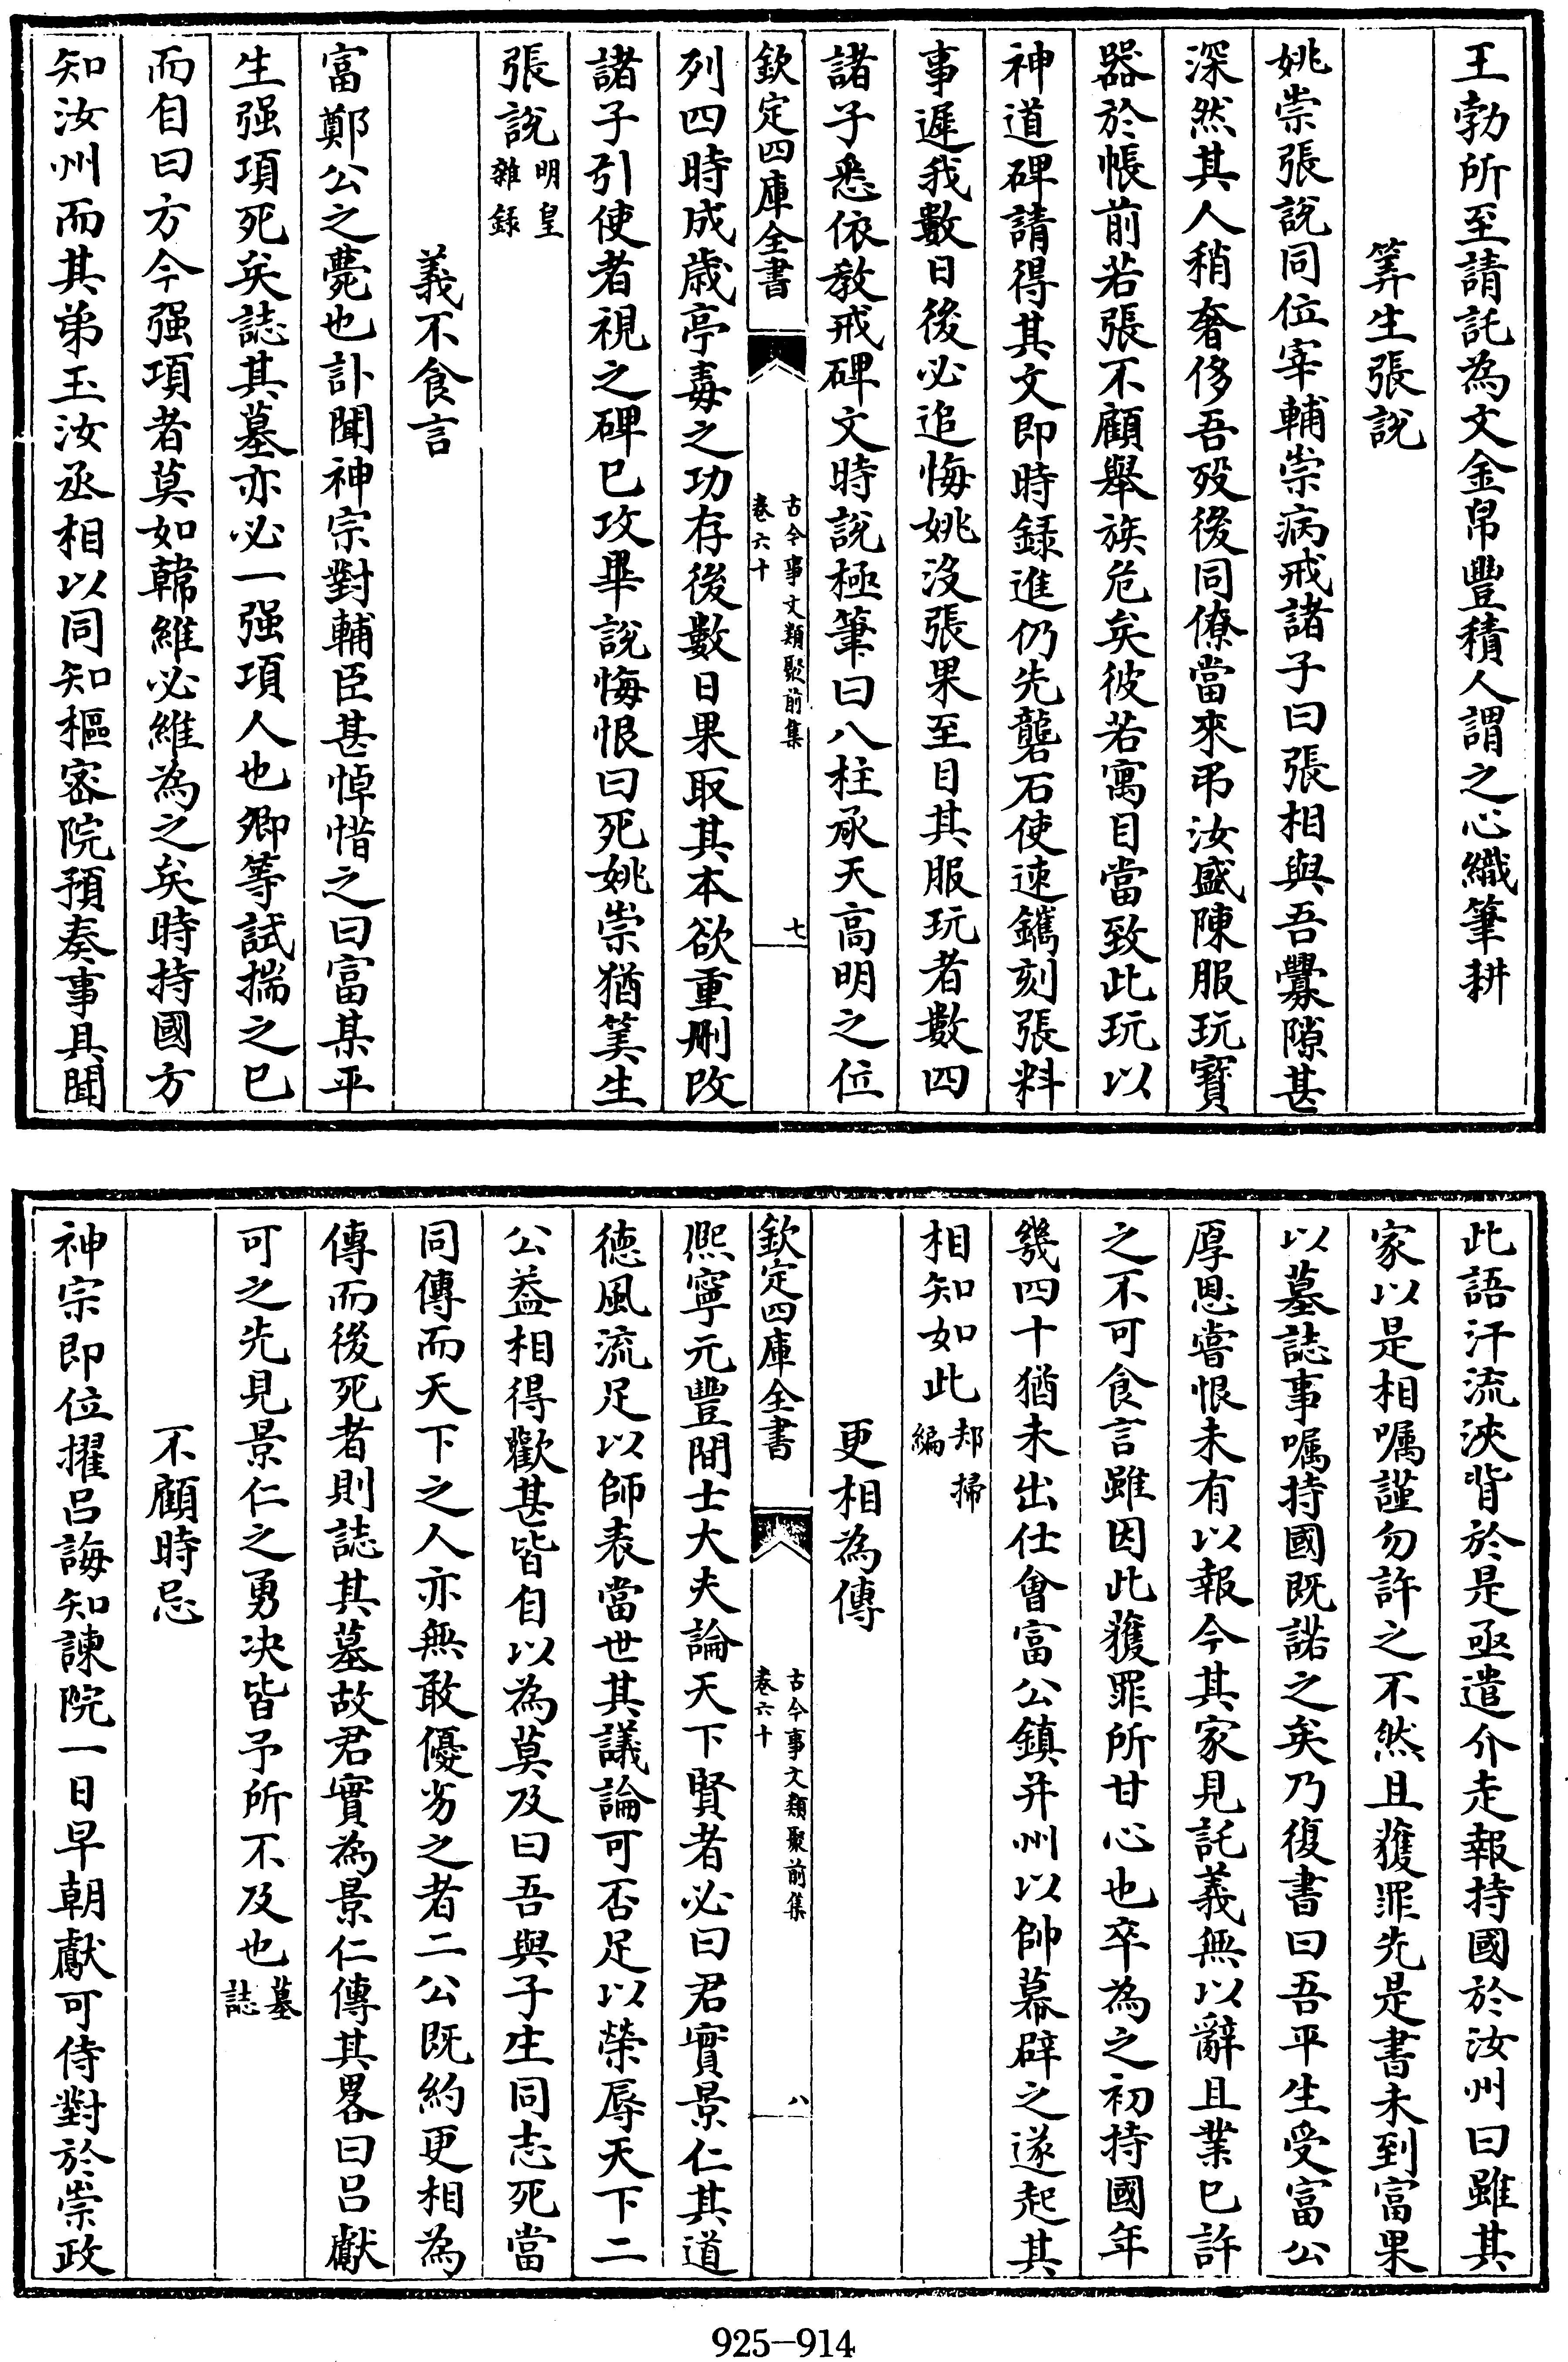 王勃所至請託為文金帛豐積人謂之心織筆耕
筭生張說
姚崇張說同位宰輔崇病戒諸子曰張相與吾釁隙甚
深然其人稍奢侈吾歿後同僚當來弔汝盛陳服玩寶
器於帳前若張不顧舉族危矣彼若寓目當致此玩以
神道碑請得其文即時録進仍先礱石使速鐫刻張料
事遲我數日後必追悔姚沒張果至目其服玩者數四
諸子悉依教戒碑文時說極筆曰八柱承天高明之位
欽定四庫全書
古今事文類聚前集
卷六十
七
列四時成歲亭毒之功存後數日果取其本欲重刪改
諸子引使者視之碑已攻畢說悔恨曰死姚崇猶筭生
張說明皇
雜錄
義不食言
富鄭公之薨也訃聞神宗對輔臣甚悼惜之曰富某平
生强項死矣誌其墓亦必一强項人也卿等試揣之已
而自曰方今强項者莫如韓維必維為之矣時持國方
知汝州而其弟玉汝丞相以同知樞密院預奏事具聞
此語汗流浹背於是亟遣介走報持國於汝州曰雖其
家以是相嘱謹勿許之不然且獲罪先是書未到富果
以墓誌事嘱持國既諾之矣乃復書曰吾平生受富公
厚恩嘗恨未有以報今其家見託義無以辭且業已許
之不可食言雖因此獲罪所甘心也卒為之初持國年
幾四十猶未出仕會富公鎮并州以帥幕辟之遂起其
相知如此却掃
編
更相為傳
欽定四庫全書
古今事文類聚前集
卷六十
八
熈寧元豐間士大夫論天下賢者必曰君實景仁其道
德風流足以師表當世其議論可否足以榮辱天下二
公葢相得歡甚皆自以為莫及曰吾與子生同志死當
同傳而天下之人亦無敢優劣之者二公既約更相為
傳而後死者則誌其墓故君實為景仁傳其畧曰吕獻
可之先見景仁之勇决皆予所不及也墓
誌
不顧時忌
神宗即位擢吕誨知諫院一日早朝獻可侍對於崇政
925-914